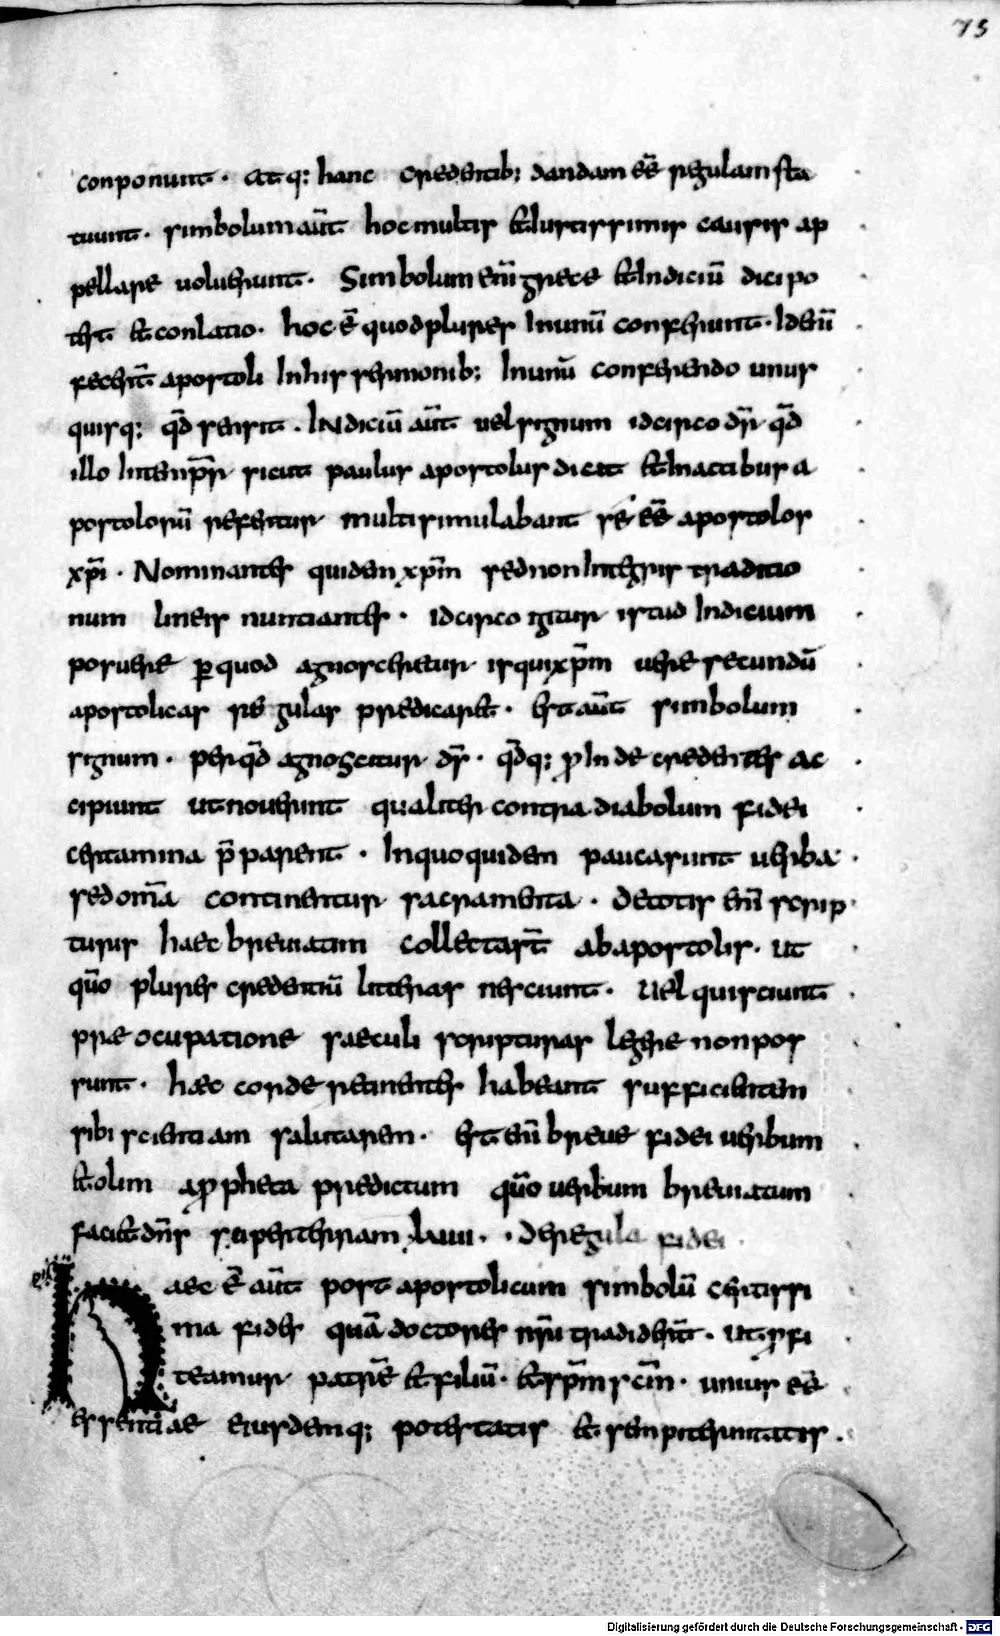 75
conponunt. atq; hanc credentib; dandam eē regulam sta
tuunt. simbolum aūt hoc multis & iustissimis causis ap
pellare uoluerunt. Simbolum enī grece & indiciū dici po
test & conlatio. hoc ē quod plures in unū conferunt. Id enī
fecerūt apostoli in his sermonib; In unū conferendo unus
quisq; qd̄ sensit. INdiciū aūt uel signum idcirco dr̄ qd̄
illo in temp̄r sicut paulus apostolus dicit & in actibus a
postolorū refertur multi simulabant se eē apostolos
xp̄i. Nominantes quidem xp̄m sed non integris traditio
num lineis nuntiantes. Idcirco igitur istud Indicium
posuere ꝑ quod agnosceretur is qui xp̄m uere secundū
apostolicas regulas predicar&. Est aūt simbolum
signum. per qd̄ agnoscitur dr̄. qd̄q; ꝓInde credentes ac
cipiunt ut nouerunt qualiter contra diabolum fidei
certamina p̄parent. In quo quidem pauca sunt uerba
sed om̄a continentur sacramenta. De totis enī scrip
turis haec breuiatim collecta st̄ ab apostolis. ut
qūo plures credentiū litteras nesciunt. Uel qui sciunt
prę ocupatione saeculi scripturas legere non pos
sunt. hęc corde retinentes habeant sufficientem
sibi scientiam salutarem. Est enī breue fidei uerbum
& olim a ꝓpheta predictum qūo uerbum breuiatum
faci& dn̄s super terram. De regula fidei
Haec ē aūt post apostolicum simbolū certissi
ma fides quā doctores nr̄i tradiderūt. Ut ꝓfi
teamur patrē & filiū. & sp̄m scm̄. unius eē
essentiae eiusdemq; potestatis & sempiternitatis.
Digitalisierung gefördert durch die Deutsche Forschungsgemeinschaft - DFG